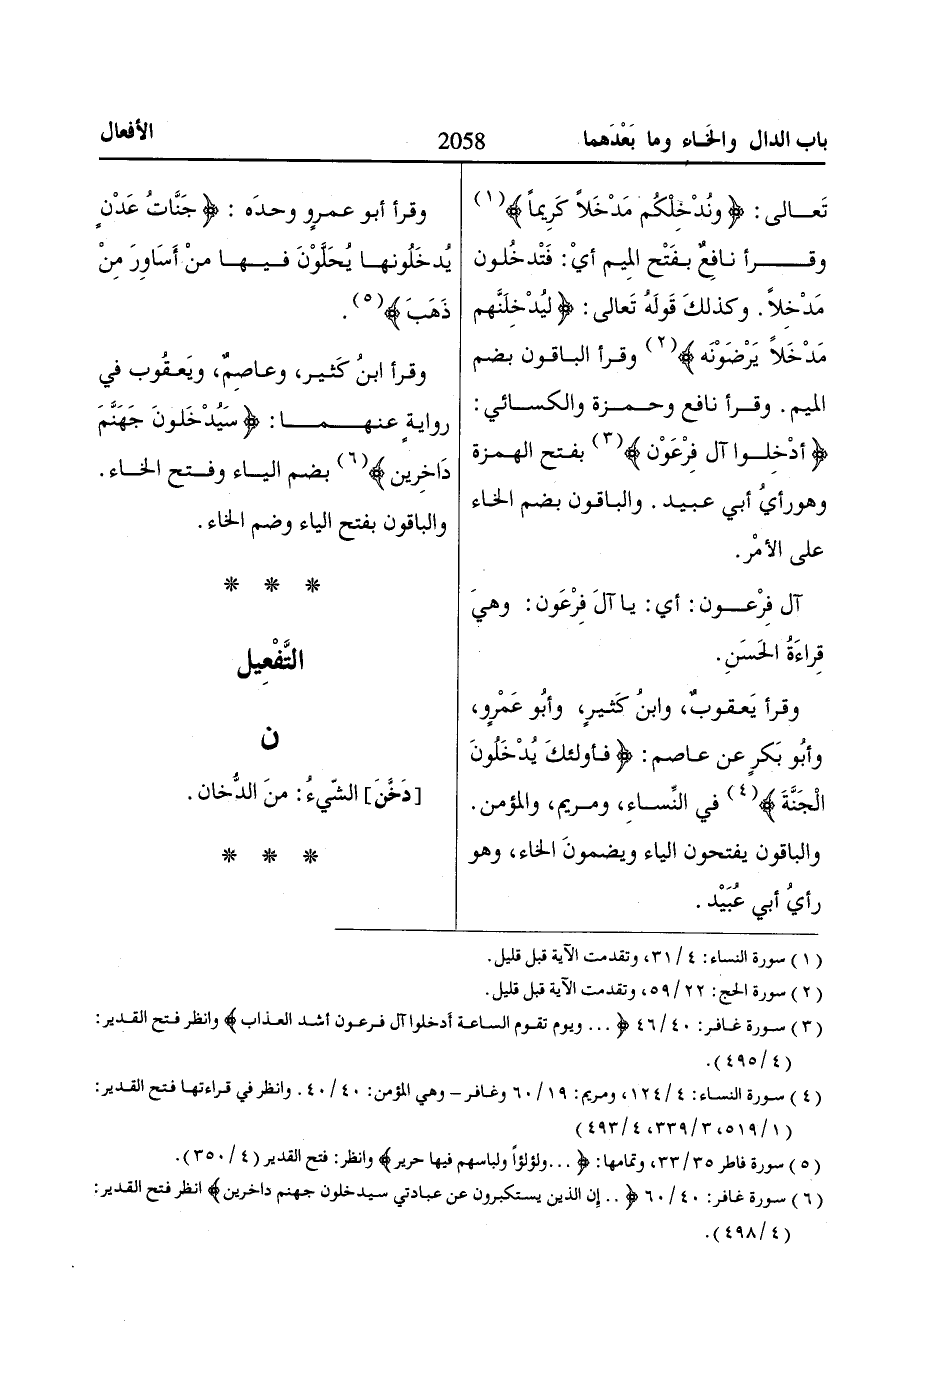 باب الدال والخاء وما بَعْدَهما
2058
الأفعال
تَعالى: ﴿وَنُدْخِلْكُم مَدْخَلاً كَرِيماً﴾(١)
وقرأ نافعٌ بفَتْح الميم أيْ: فَتْدخُلون
مَدْخلاً. وكذلكَ قَولَهُ تَعالى: ﴿لَيُدْخِلَنَّهم
مَدْخَلاً يَرْضَوْنَه﴾(٢) وقرأ الباقون بضم
الميم. وقرأ نافع وحمزة والكسائي:
﴿أدْخلوا آل فِرْعَوْن﴾(٣) بفتح الهمزة
وهورأيُ أبي عبيد. والباقون بضم الخاء
على الأمْر.
آل فِرْعون: أي: يا آلَ فِرْعَون: وهيَ
قِراءَةُ الحَسَنِ.
وقرأ يَعقوبٌ، وابنُ كَثيرٍ، وأبُو عَمْرٍو،
وأبُو بَكرٍ عن عاصم: ﴿فأولئكَ يُدْخَلُونَ
الْجَنَّةَ﴾(٤) في النِّساءِ، ومريم، والمؤمن.
والباقون يفتحون الياء ويضمونَ الخاء، وهو
رأيُ أبي عُبَيْد.
وقرأ أبو عمرٍو وحدَه: ﴿جَنَّاتُ عَدْنٍ
يُدخَلُونها يُحَلَّوْنَ فيها منْ أَسَاوِرَ مِنْ
ذَهَبَ﴾(٥).
وقرأ ابنُ كَثير، وعاصمٌ، ويَعقُوب في
روايةٍ عنهما: ﴿سَيُدْخَلونَ جَهَنَّمَ
دَاخِرين﴾(٦) بضم الياء وفتح الخاء.
والباقون بفتح الياء وضم الخاء.
* * *
التَّفْعِيل
ن
[دَخَّنَ] الشّيءُ: منَ الدُّخان.
* * *
(١) سورة النساء: ٤/٣١، وتقدمت الآية قبل قليل.
(٢) سورة الحج: ٢٢/٥٩، وتقدمت الآية قبل قليل.
(٣) سورة غافر: ٤٠/٤٦ ﴿... ويوم تقوم الساعة أدخلوا آل فرعون أشد العذاب﴾ وانظر فتح القدير:
(٤/٤٩٥).
(٤) سورة النساء: ٤/١٢٤، ومريم: ١٩/٦٠ وغافر – وهي المؤمن: ٤٠/٤٠. وانظر في قراءتها فتح القدير:
(١/٥١٩، ٣/٣٣٩، ٤/٤٩٣)
(٥) سورة فاطر ٣٥/٣٣، وتمامها: ﴿...ولؤلؤاً ولباسهم فيها حرير﴾ وانظر: فتح القدير (٤/٣٥٠).
(٦) سورة غافر: ٤٠/٦٠ ﴿.. إن الذين يستكبرون عن عبادتي سيدخلون جهنم داخرين﴾ انظر فتح القدير:
(٤/٤٩٨).